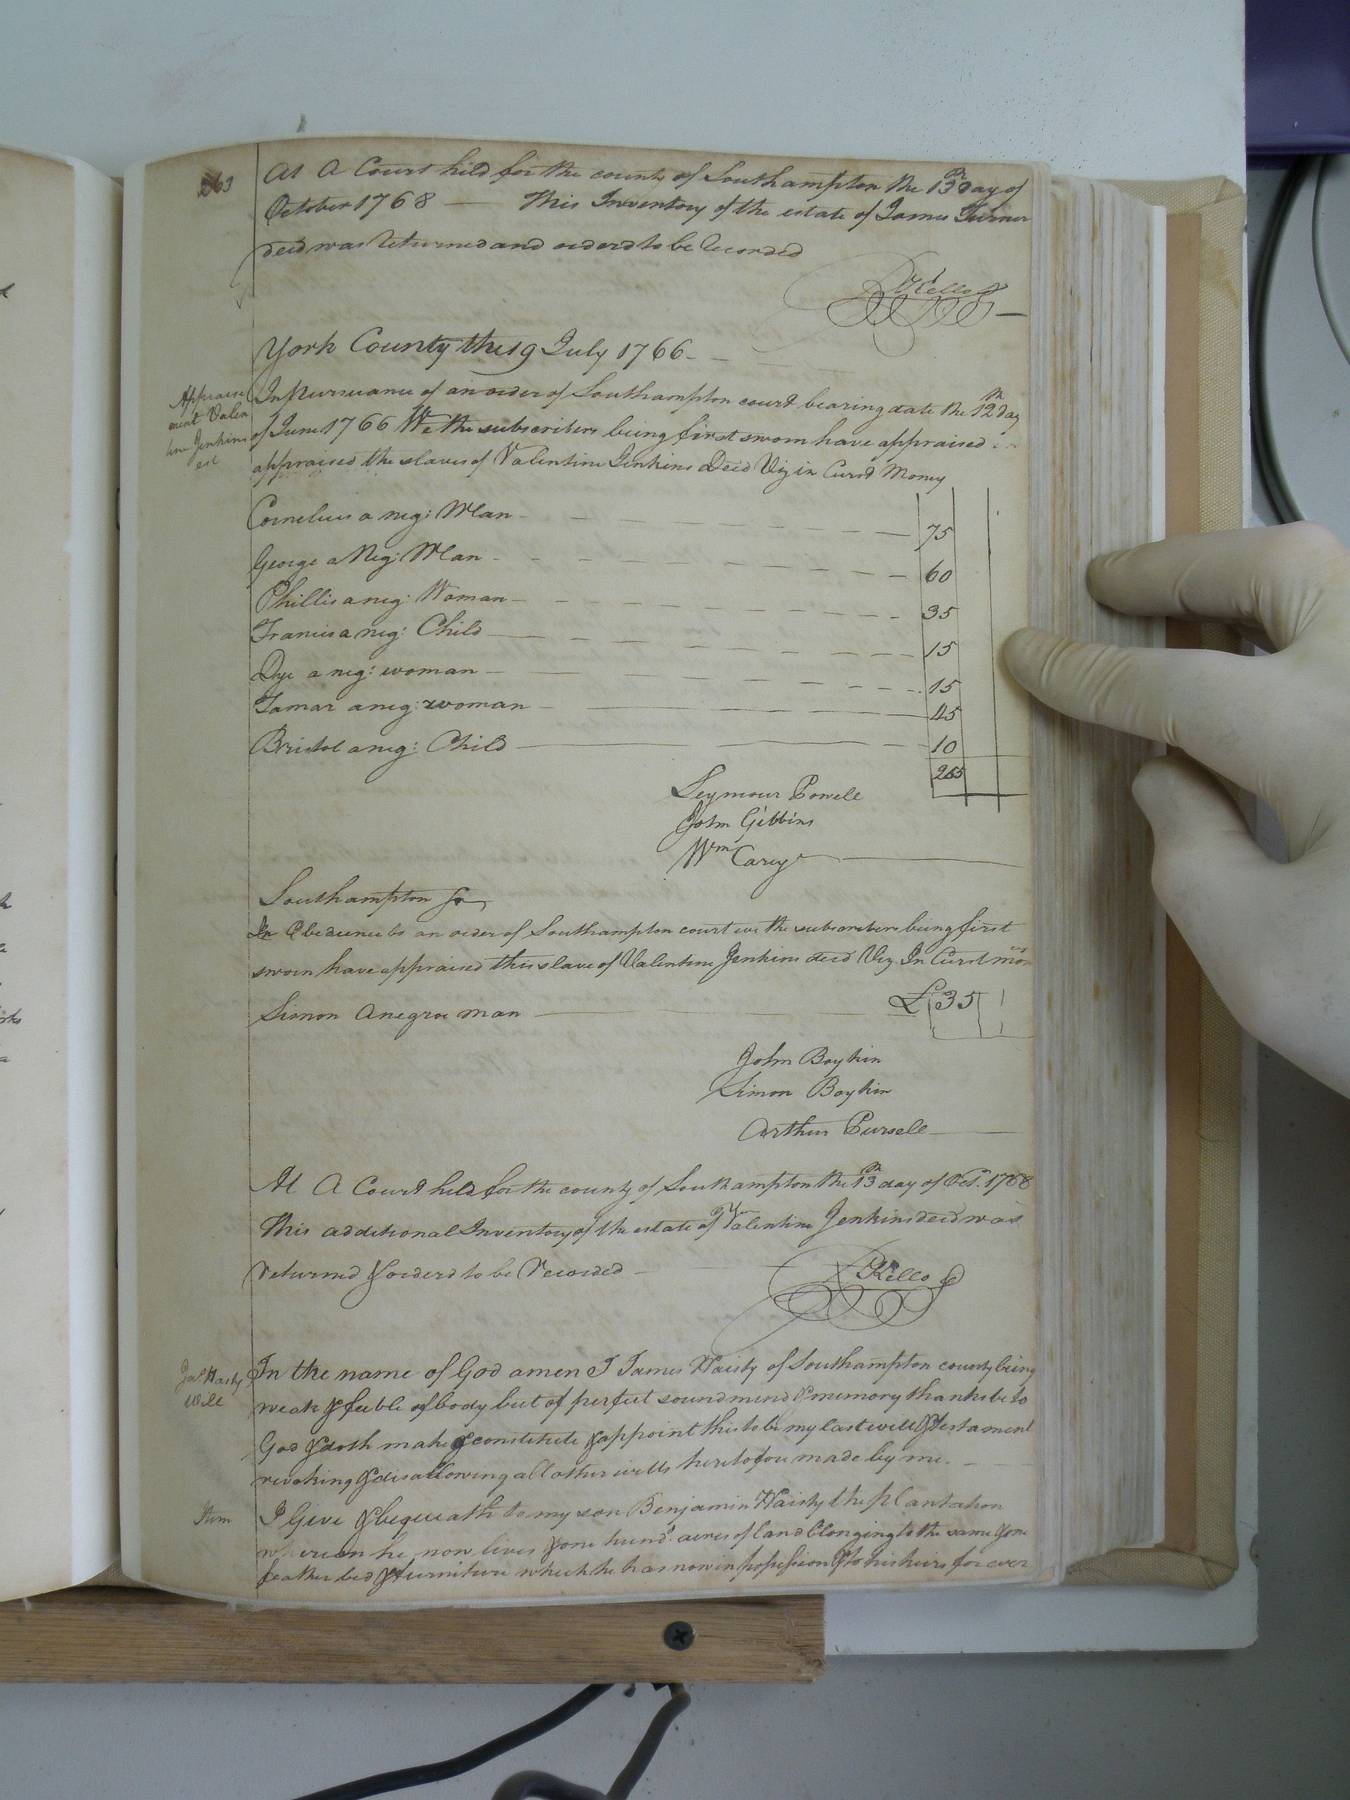 263
At A Court held for the county of Southampton the 13th day of
October 1768 — This Inventory of the estate of James Turner
deced was returned and orderd to be Recorded
R Kello
York County this 9 July 1766
Appraise
ment Valen
tine Jenkins
est
In Pursuance of an order of Southampton court bearing date the 12th day
of June 1766 We the subscribers being first sworn have appraised
appraised the slaves of Valentine Jenkins Deced Viz in Curr't Money
Cornelius a neg: Man 75
George a Neg: Man 60
Phillis a neg: Woman 35
Francis a neg: Child 15
Dye a neg: woman 15
Tamar a neg: woman 45
Bristol a neg: Child 10
255
Seymour Powell
John Gibbins
Wm Carey
Southampton Sc
In Obedience to an order of Southampton court we the subscribers being first
sworn have appraised this slave of Valentine Jenkins deced Viz In Curr't mon
Simon a negroe man £ 35
John Boykin
Simon Boykin
Arthur Pursell
At A Court held for the county of Southampton the 13th day of Oct. 1768
This additional Inventory of the estate of Valentine Jenkins deced was
returned & orderd to be Recorded
R Kello
Jas Haisty
Will
In the name of God amen I James Haisty of Southampton county being
weak & feeble of body but of perfect sound mind & memory thanks be to
God & doth make & constitute & appoint this to be my last will & testament
revoking & disallowing all other wills heretofou made by me.
Item
I Give & bequeath to my son Benjamin Haisty the plantation
wherein he now lives & one hund'd acres of land blonging to the same & one
feather bed & furniture which he has now in possession & to his heirs for ever